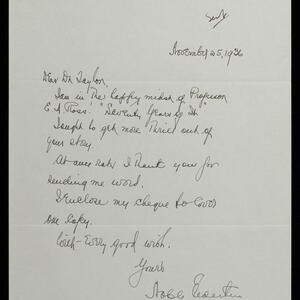 November 25, 1936
Dear Dr. Taylor,
I am in the happy midst of Professor
E. A. Ross' "Seventy Years of It"
I ought to get more thrill out of
your story.
At any rate I thank you for
sending me word.
I enclose my cheque to cover
one copy.
With every good wish.
Yours